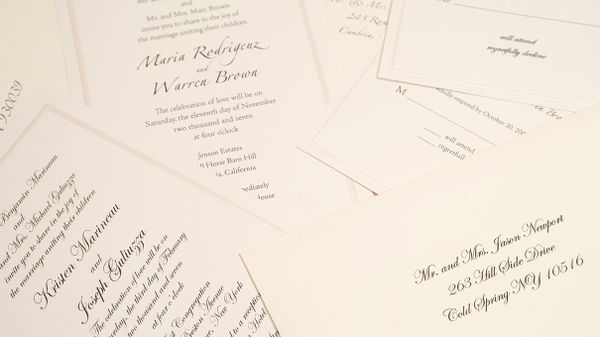 Mr. and Mrs. Marc Brown
invite you to share in the joy of
the marriage uniting their children
Maria Rodrigeuz
and
Warren Brown
The celebration of love will be on
Saturday, the eleventh day of November
two thousand and seven
at four o'clock
Jenson Estates
Horse Barn Hill
California
House
will attend
regretfully decline
M
respond by October 20,
will attend
Benjamin Marineau
and
and Mrs. Michael Guliuzza
invite you to share in the joy of
the marriage uniting their children
Kristen Marineau
and
Joseph Guliuzza
The celebration of love will be on
the third day of February
two thousand and seven
at four o'clock
Congregation
Avenue
New York
to a reception
Hotel
Mr. and Mrs. Jason Newport
263 Hill Side Drive
Cold Spring NY 10516